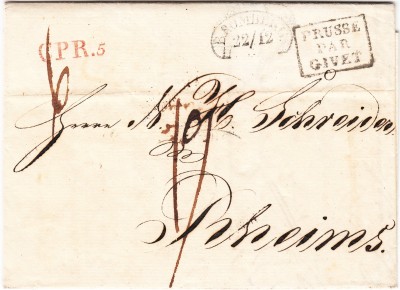 CPR.5
BROMBERG
22/12
PRUSSE
PAR
GIVET
Herrn N. H. Schreider
Rheims.